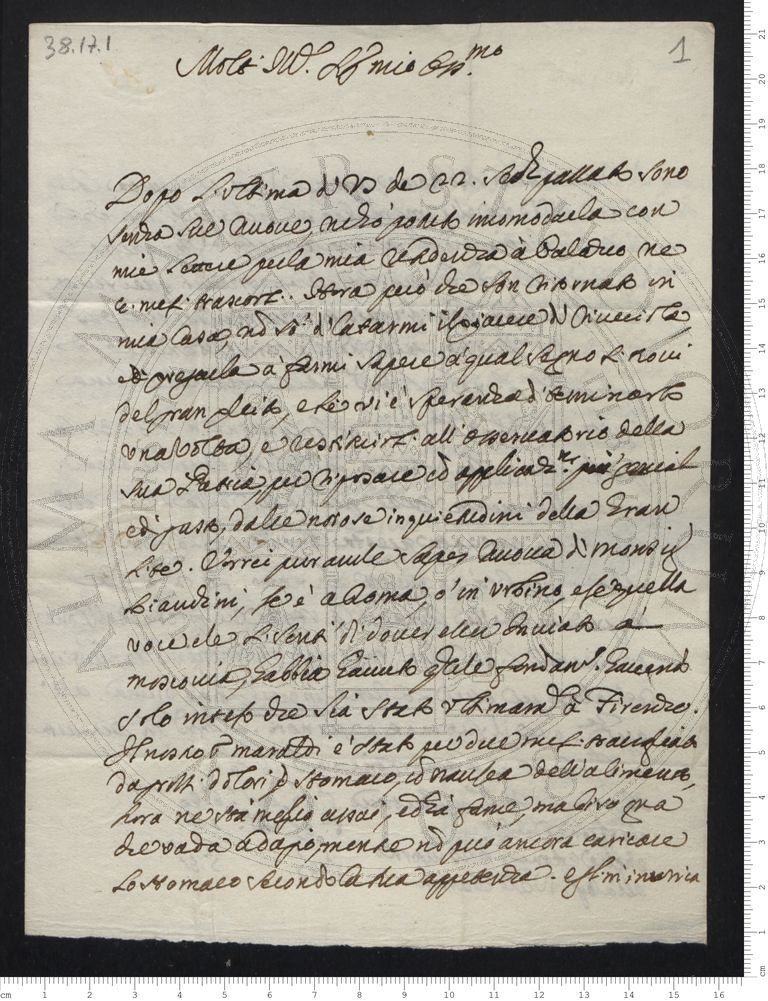 38.17.1
1
Molt' Ill.e Sig.r mio
Dopo l'ultima di VS de 22. 7bre passato sono
senza sue nuove, ne hò potuto incomodarla con
mie lettere per la mia residenza à Palazzo ne
mesi trascorsi. Hora però che son ritornato in
mia Casa, nō il piacere di riverirla
e pregarla à farmi sapere à qual segno si trovi
del gran, e se vi è speranza di terminarlo
una volta, e restituirsi all'osservatorio della
sua Patria per riposare ed applicaz.ni più geniali
ed, dalle noiose inquietudini della gran
lite. Vorrei pur anche saper nuova di Monsig.r
Bianchini, se è a Roma, ò in Urbino, e se quella
voce che si sentì di dover esser inviato à
moscovia, habbia havuto qualche fondam.to havendo
solo inteso che sia stato ultimam.te à Firenze.
Il nostro S.r Maraldi è stato per due mesi
da dolori di stomaco, ed nausea dell'alimento,
hora ne stà meglio assai, ed hà fame, ma
che vada adagio, mentre nō può ancora caricare
lo stomaco secondo la sua appetenza.